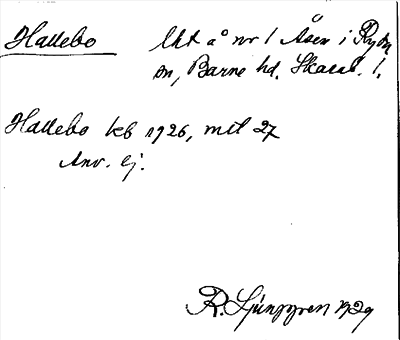 Hallebo lht å nr 1 Åsen i Ryda
sn, Barne hd. Skarab. l.
Hallebo kb 1926, mtl 27
Anv. ej.
R. Ljunggren 1929